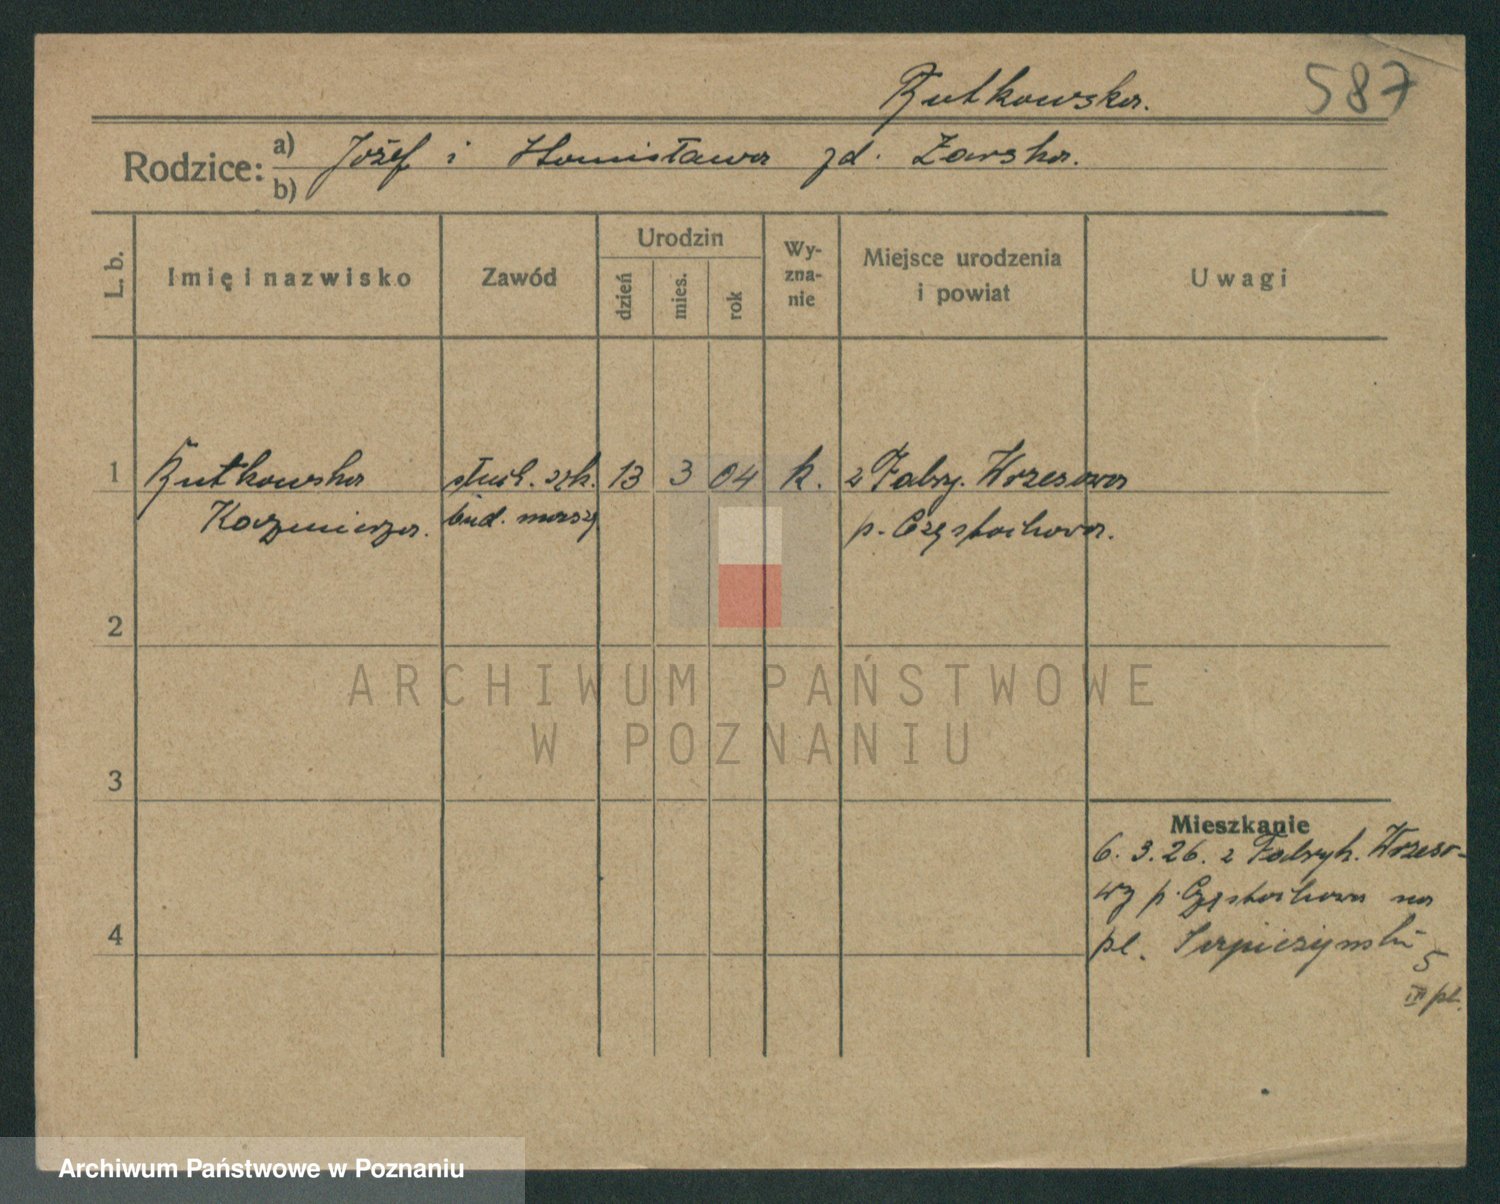 Rutkowska.
587
Rodzice: a) Józef i Stanisława zd. Żarska.
b)
L. b.
Imię i nazwisko
Zawód
Urodzin
dzień
mies.
rok
Wy-
zna-
nie
Miejsce urodzenia
i powiat
Uwagi
1 Rutkowska słuch. szk. 13 3 04 k. z Fabry. Wrzesowa
Kazimiera. bud. maszy p. Częstochowa.
2
ARCHIWUM PAŃSTWOWE
W POZNANIU
3
Mieszkanie
6. 3. 26. z Fabryk. Wrzeso-
wy p. Częstochowa na
4
pl. 5
III pt.
Archiwum Państwowe w Poznaniu